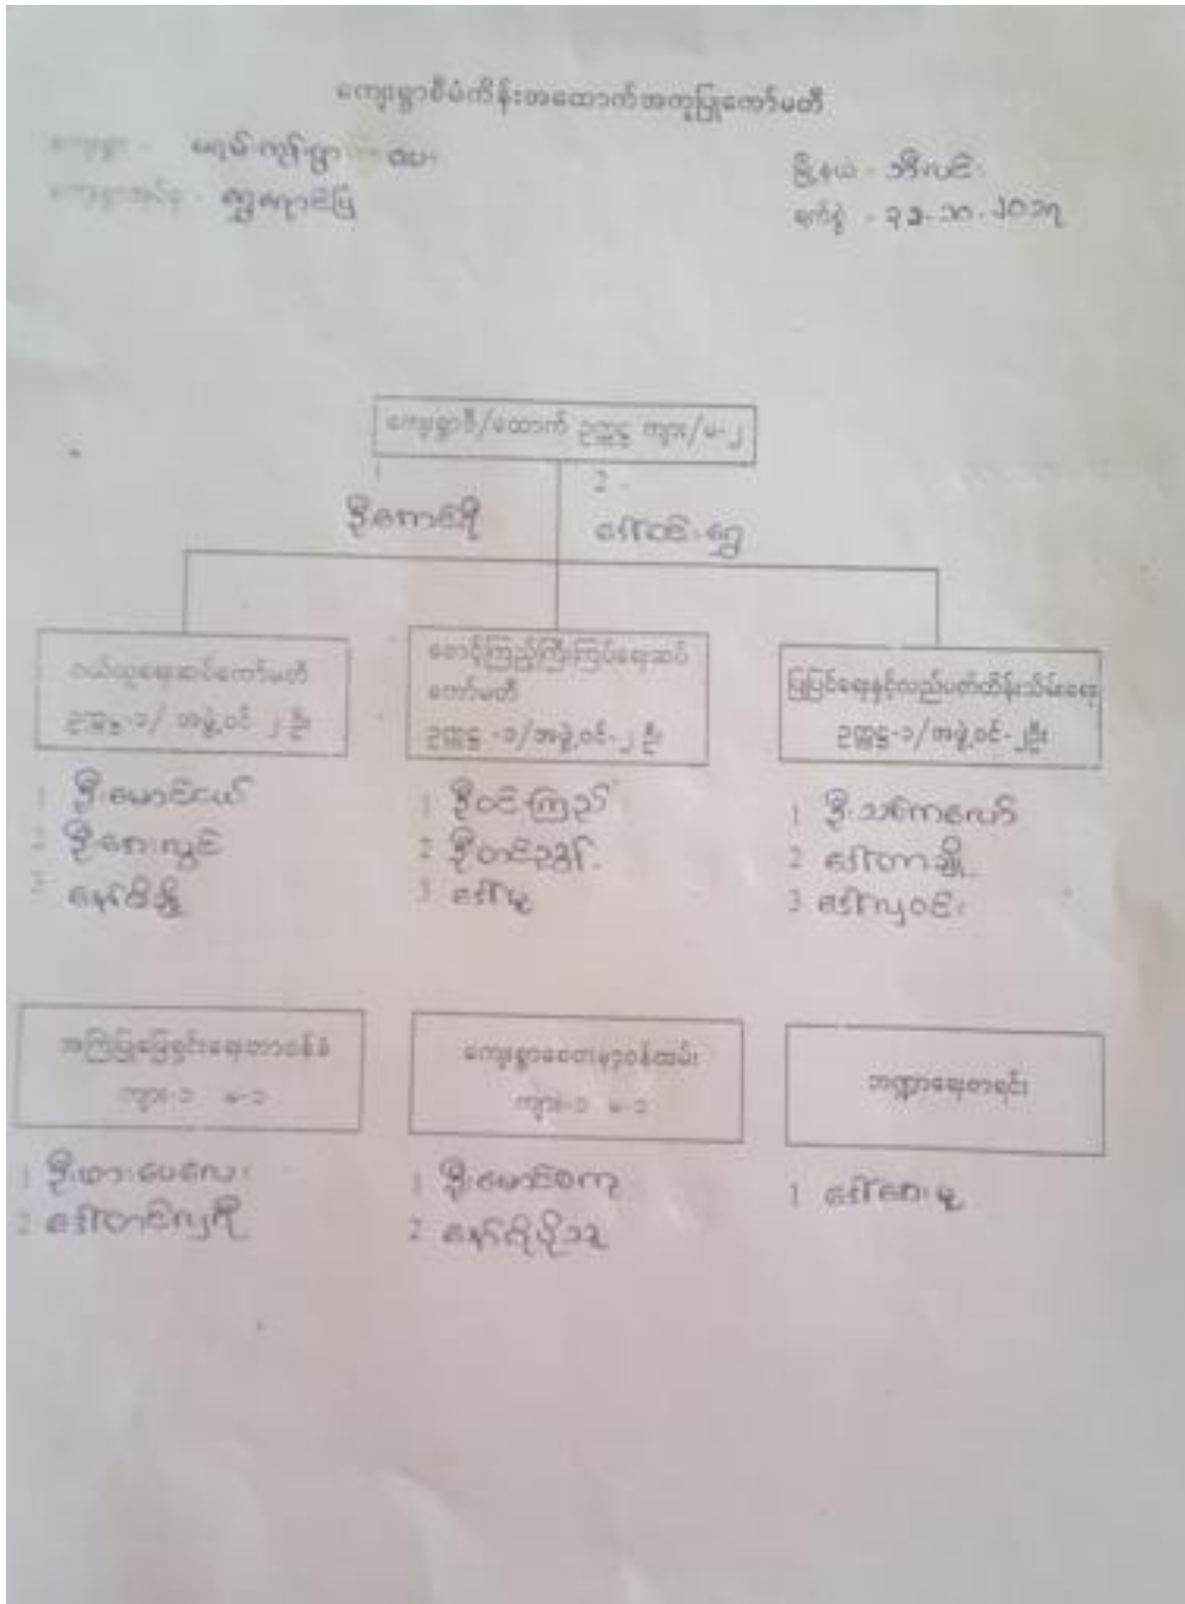 ကျေးရွာစီမံကိန်းအထောက်အကူပြုကော်မတီ
ကျေးရွာ -
မြို့နယ် - ဘီးလင်း
ကျေးရွာအုပ်စု - ရွှေရောင်ပြ
ရက်စွဲ - ၁၀-၂၀၁၇
ကျေးရွာစီ/ထောက် ဥက္ကဋ္ဌ ကျား/မ-၂
1
2 -
ဦးအောင်ကို
ဒေါ်ဝင်းရွှေ
ဝယ်ယူရေးဆပ်ကော်မတီ
ဥက္ကဋ္ဌ-၁/ အဖွဲ့ဝင် ၂ဦး
1 ဦးမောင်ငယ်
2 ဦးစောလွင်
3
စောင့်ကြည့်ကြီးကြပ်ရေးဆပ်
ကော်မတီ
ဥက္ကဋ္ဌ -၁/အဖွဲ့ဝင်-၂ဦး
1 ဦးဝင်းကြည်
2 ဦးတင်ညွန့်
3 ဒေါ်မူ
ပြုပြင်ရေးနှင့်လည်ပတ်ထိန်းသိမ်းရေး
ဥက္ကဋ္ဌ-၁/အဖွဲ့ဝင်-၂ဦး
1 ဦးသစ်ကလော်
2 ဒေါ်တာချို
3 ဒေါ်လှဝင်း
အကြံပြုဖြေရှင်းရေးတာဝန်ခံ
ကျား-၁ မ-၁
1 ဦးထားပေလေး
2 ဒေါ်တင်လှကြီ
ကျေးရွာစေတနာ့ဝန်ထမ်း
ကျား-၁ မ-၁
1 ဦးမောင်စကု
2 နော်
ဘဏ္ဍာရေးစာရင်း
1 ဒေါ်အေးမူ